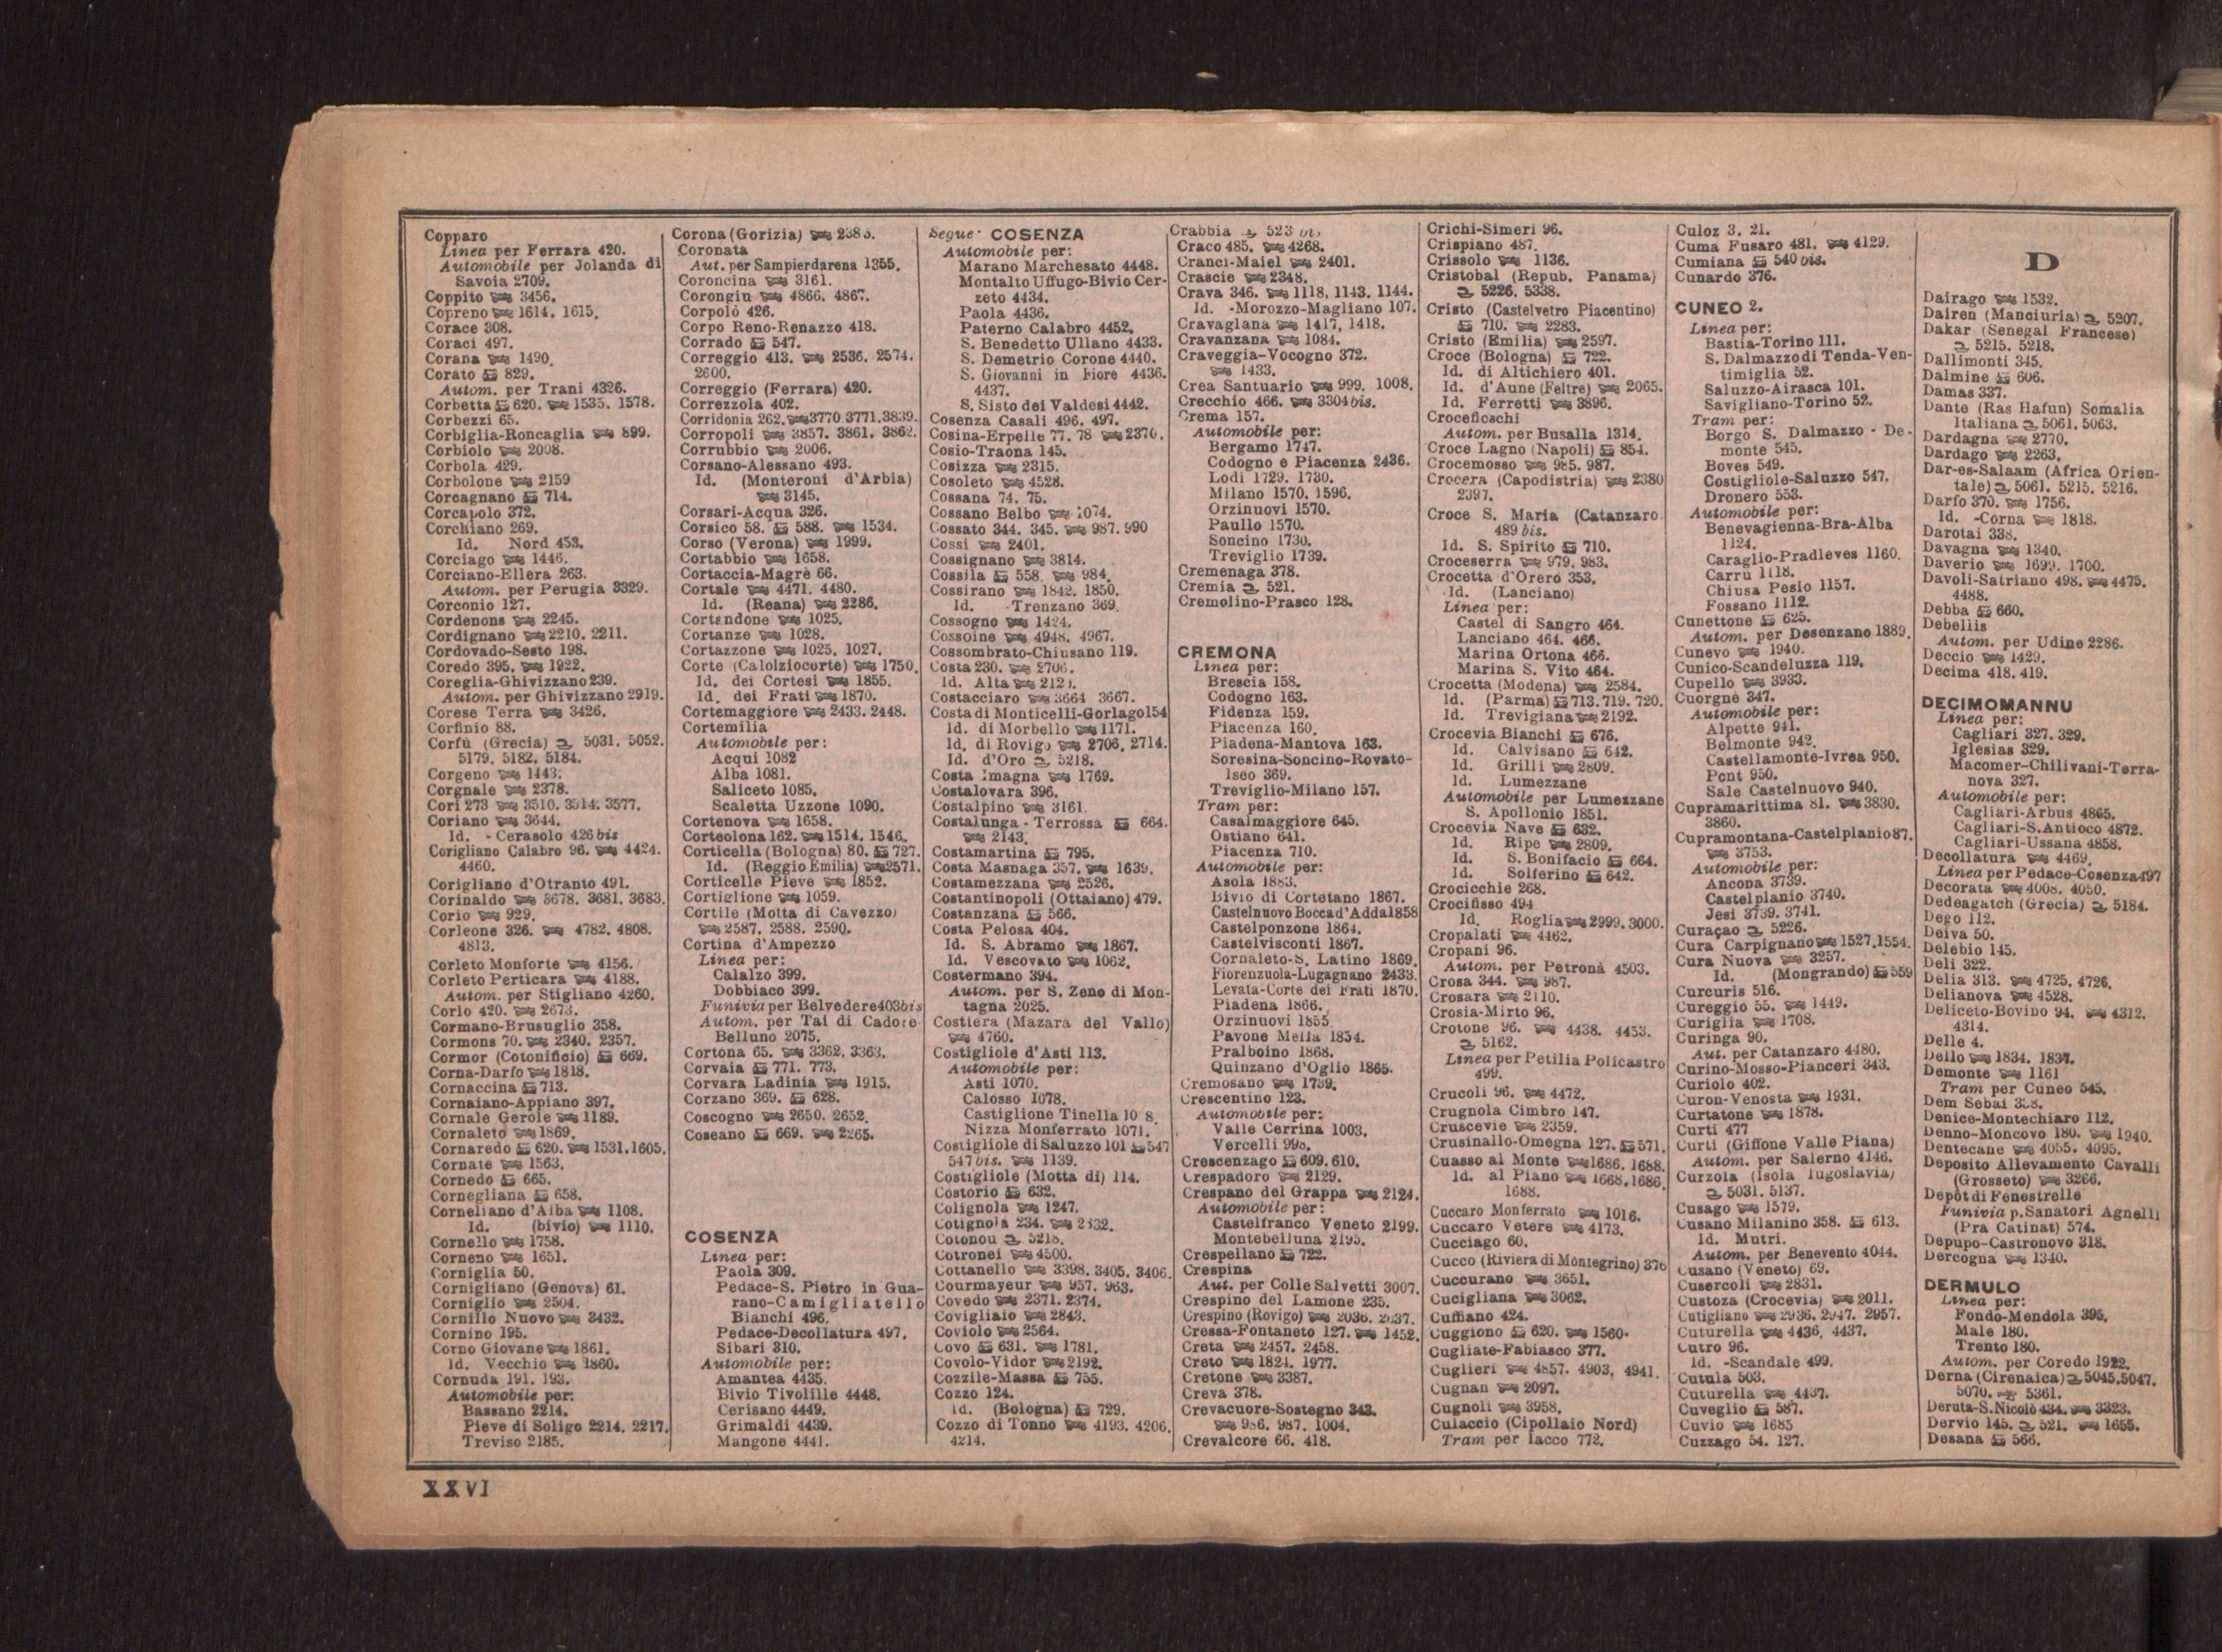 Copparo
Linea per Ferrara 420.
Automobile per Jolanda di
Savoia 2709.
Coppito 3456.
Copreno 1614. 1615.
Corace 308.
Coraci 497.
Corana 1490.
Corato 829.
Autom. per Trani 4326.
Corbetta 620. 1535. 1578.
Corbezzi 65.
Corbiglia-Roncaglia 899.
Corbiolo 2008.
Corbola 429.
Corbolone 2159
Corcagnano 714.
Corcapolo 372.
Corchiano 269.
Id. Nord 453.
Corciago 1446.
Corciano-Ellera 263.
Autom. per Perugia 3329.
Corconio 127.
Cordenons 2245.
Cordignano 2210. 2211.
Cordovado-Sesto 198.
Coredo 395. 1922.
Coreglia-Ghivizzano 239.
Autom. per Ghivizzano 2919.
Corese Terra 3426.
Corfinio 88.
Corfù (Grecia) 5031. 5052.
5179. 5182. 5184.
Corgeno 1443.
Corgnale 2378.
Cori 273 3510. 3514. 3577.
Coriano 3644.
Id. - Cerasolo 426 bis
Corigliano Calabro 96. 4424.
4460.
Corigliano d'Otranto 491.
Corinaldo 3678. 3681. 3683.
Corio 929.
Corleone 326. 4782. 4808.
4813.
Corleto Monforte 4156.
Corleto Perticara 4188.
Autom. per Stigliano 4260.
Corlo 420. 2673.
Cormano-Brusuglio 358.
Cormons 70. 2340. 2357.
Cormor (Cotonificio) 669.
Corna-Darfo 1818.
Cornaccina 713.
Cornaiano-Appiano 397.
Cornale Gerole 1189.
Cornaleto 1869.
Cornaredo 620. 1531. 1605.
Cornate 1563.
Cornedo 665.
Cornegliana 658.
Corneliano d'Alba 1108.
Id. (bivio) 1110.
Cornello 1758.
Corneno 1651.
Corniglia 50.
Cornigliano (Genova) 61.
Corniglio 2504.
Cornillo Nuovo 3432.
Cornino 195.
Corno Giovane 1861.
Id. Vecchio 1860.
Cornuda 191. 193.
Automobile per:
Bassano 2214.
Pieve di Soligo 2214. 2217.
Treviso 2185.
Corona (Gorizia)
Coronata
Aut. per Sampierdarena 1355.
Coroncina 3161.
Corongiu 4866. 4867.
Corpolò 426.
Corpo Reno-Renazzo 418.
Corrado 547.
Correggio 413. 2536. 2574.
2600.
Correggio (Ferrara) 420.
Correzzola 402.
Corridonia 262. 3770 3771. 3839.
Corropoli 3857. 3861. 3862.
Corrubbio 2006.
Corsano-Alessano 493.
Id. (Monteroni d'Arbia)
3145.
Corsari-Acqua 326.
Corsico 58. 588. 1534.
Corso (Verona) 1999.
Cortabbio 1658.
Cortaccia-Magrè 66.
Cortale 4471. 4480.
Id. (Reana) 2286.
Cortandone 1025.
Cortanze 1028.
Cortazzone 1025. 1027.
Corte (Calolziocorte) 1750.
Id. dei Cortesi 1855.
Id. dei Frati 1870.
Cortemaggiore 2433. 2448.
Cortemilia
Automobile per:
Acqui 1082
Alba 1081.
Saliceto 1085.
Scaletta Uzzone 1090.
Cortenova 1658.
Corteolona 162. 1514. 1546.
Corticella (Bologna) 80. 727.
Id. (Reggio Emilia) 2571.
Corticelle Pieve 1852.
Cortiglione 1059.
Cortile (Motta di Cavezzo)
2587. 2588. 2590.
Cortina d'Ampezzo
Linea per:
Calalzo 399.
Dobbiaco 399.
Funivia per Belvedere 403 bis
Autom. per Tai di Cadore
Belluno 2075.
Cortona 65. 3362. 3363.
Corvaia 771. 773.
Corvara Ladinia 1915.
Corzano 369. 628.
Coscogno 2650. 2652.
Coseano 669. 2265.
COSENZA
Linea per:
Paola 309.
Pedace-S. Pietro in Gua-
rano-Camigliatello
Bianchi 496.
Pedace-Decollatura 497.
Sibari 310.
Automobile per:
Amantea 4435.
Bivio Tivolille 4448.
Cerisano 4449.
Grimaldi 4439.
Mangone 4441.
Segue COSENZA
Automobile per:
Marano Marchesato 4448.
Montalto Uffugo-Bivio Cer-
zeto 4434.
Paola 4436.
Paterno Calabro 4452.
S. Benedetto Ullano 4433.
S. Demetrio Corone 4440.
S. Giovanni in Fiore 4436.
4437.
S. Sisto dei Valdesi 4442.
Cosenza Casali 496. 497.
Cosina-Erpelle 77. 78 2370.
Cosio-Traona 145.
Cosizza 2315.
Cosoleto 4528.
Cossana 74. 75.
Cossano Belbo 1074.
Cossato 344. 345. 987. 990
Cossi 2401.
Cossignano 3814.
Cossila 558. 984.
Cossirano 1842. 1850.
Id. -Trenzano 369.
Cossogno 1424.
Cossoine 4948. 4967.
Cossombrato-Chiusano 119.
Costa 230. 2706.
Id. Alta
Costacciaro 3664 3667.
Costa di Monticelli-Gorlago 154
Id. di Morbello 1171.
Id. di Rovigo 2706. 2714.
Id. d'Oro 5218.
Costa Imagna 1769.
Costalovara 396.
Costalpino 3161.
Costalunga - Terrossa 664.
2143.
Costamartina 795.
Costa Masnaga 357. 1639.
Costamezzana 2526.
Costantinopoli (Ottaiano) 479.
Costanzana 566.
Costa Pelosa 404.
Id. S. Abramo 1867.
Id. Vescovato 1062.
Costermano 394.
Autom. per S. Zeno di Mon-
tagna 2025.
Costiera (Mazara del Vallo)
4760.
Costigliole d'Asti 113.
Automobile per:
Asti 1070.
Calosso 1078.
Castiglione Tinella
Nizza Monferrato 1071.
Costigliole di Saluzzo 101 547
547 bis. 1139.
Costigliole (Motta di) 114.
Costorio 632.
Cotignola 1247.
Cotignola 234. 2332.
Cotonou 5218.
Cotronei 4500.
Cottanello 3398. 3405. 3406.
Courmayeur 957. 963.
Covedo 2371. 2374.
Covigliaio 2843.
Coviolo 2564.
Covo 631. 1781.
Covolo-Vidor 2192.
Cozzile-Massa 755.
Cozzo 124.
Id. (Bologna) 729.
Cozzo di Tonno 4193. 4206.
4214.
Crabbia 523 bis
Craco 485. 4268.
Cranci-Maiel 2401.
Crascie 2348.
Crava 346. 1118. 1143. 1144.
Id. -Morozzo-Magliano 107.
Cravagliana 1417. 1418.
Cravanzana 1084.
Craveggia-Vocogno 372.
1433.
Crea Santuario 999. 1008.
Crecchio 466. 3304 bis.
Crema 157.
Automobile per:
Bergamo 1747.
Codogno e Piacenza 2436.
Lodi 1729. 1730.
Milano 1570. 1596.
Orzinuovi 1570.
Paullo 1570.
Soncino 1730.
Treviglio 1739.
Cremenaga 378.
Cremia 521.
Cremolino-Prasco 128.
CREMONA
Linea per:
Brescia 158.
Codogno 163.
Fidenza 159.
Piacenza 160.
Piadena-Mantova 163.
Soresina-Soncino-Rovato-
Iseo 369.
Treviglio-Milano 157.
Tram per:
Casalmaggiore 645.
Ostiano 641.
Piacenza 710.
Automobile per:
Asola 1883.
Bivio di Cortetano 1867.
Castelnuovo Bocca d'Adda 1858
Castelponzone 1864.
Castelvisconti 1867.
Cornaleto-S. Latino 1869.
Fiorenzuola-Lugagnano 2433.
Levata-Corte dei Frati 1870.
Piadena 1866.
Orzinuovi 1855
Pavone Mella 1854.
Pralboino 1868.
Quinzano d'Oglio 1865.
Cremosano 1739.
Crescentino 123.
Automobile per:
Valle Cerrina 1003.
Vercelli 998.
Crescenzago 609. 610.
Crespadoro 2129.
Crespano del Grappa 2124.
Automobile per:
Castelfranco Veneto 2199.
Montebelluna 2195.
Crespellano 722.
Crespina
Aut. per Colle Salvetti 3007.
Crespino del Lamone 235.
Crespino (Rovigo) 2036. 2037.
Cressa-Fontaneto 127. 1452.
Creta 2457. 2458.
Creto 1824. 1977.
Cretone 3387.
Creva 378.
Crevacuore-Sostegno 343.
986. 987. 1004.
Crevalcore 66. 418.
Crichi-Simeri 96.
Crispiano 487.
Crissolo 1136.
Cristobal (Repub. Panama)
5226. 5338.
Cristo (Castelvetro Piacentino)
710. 2283.
Cristo (Emilia) 2597.
Croce (Bologna) 722.
Id. di Altichiero 401.
Id. d'Aune (Feltre) 2065.
Id. Ferretti 3896.
Crocefieschi
Autom. per Busalla 1314.
Croce Lago (Napoli) 854.
Crocemosso 985. 987.
Crocera (Capodistria) 2380
2397.
Croce S. Maria (Catanzaro
489 bis.
Id. S. Spirito 710.
Croceserra 979. 983.
Crocetta d'Orero 353.
Id. (Lanciano)
Linea per:
Castel di Sangro 464.
Lanciano 464. 466.
Marina Ortona 466.
Marina S. Vito 464.
Crocetta (Modena) 2584.
Id. (Parma) 713. 719. 720.
Id. Trevigiana 2192.
Crocevia Bianchi 676.
Id. Calvisano 642.
Id. Grilli 2809.
Id. Lumezzane
Automobile per Lumezzane
S. Apollonio 1851.
Crocevia Nave 632.
Id. Ripe 2809.
Id. S. Bonifacio 664.
Id. Solferino 642.
Crocicchie 268.
Crocifisso 494
Id. Roglia 2999. 3000.
Cropalati 4462.
Cropani 96.
Autom. per Petronà 4503.
Crosa 344. 987.
Crosara 2110.
Crosia-Mirto 96.
Crotone 96. 4438. 4453.
5162.
Linea per Petilia Policastro
499.
Crucoli 96. 4472.
Crugnola Cimbro 147.
Cruscevie 2359.
Crusinallo-Omegna 127. 571.
Cuasso al Monte 1686. 1688.
Id. al Piano 1668. 1686.
1688.
Cuccaro Monferrato 1016.
Cuccaro Vetere 4173.
Cucciago 60.
Cucco (Riviera di Montegrino) 376
Cuccurano 3651.
Cucigliana 3062.
Cuffiano 424.
Cuggiono 620. 1560.
Cugliate-Fabiasco 377.
Cuglieri 4857. 4903. 4941.
Cugnan 2097.
Cugnoli 3958.
Culaccio (Cipollaio Nord)
Tram per Iacco 772.
Culoz 3. 21.
Cuma Fusaro 481. 4129.
Cumiana 540 bis.
Cunardo 376.
CUNEO 2.
Linea per:
Bastia-Torino 111.
S. Dalmazzo di Tenda-Ven-
timiglia 52.
Saluzzo-Airasca 101.
Savigliano-Torino 52.
Tram per:
Borgo S. Dalmazzo - De-
monte 545.
Boves 549.
Costigliole-Saluzzo 547.
Dronero 553.
Automobile per:
Benevagienna-Bra-Alba
1124.
Caraglio-Pradleves 1160.
Carrù 1118.
Chiusa Pesio 1157.
Fossano 1112.
Cunettone 625.
Autom. per Desenzano 1889.
Cunevo 1940.
Cunico-Scandeluzza 119.
Cupello 3933.
Cuorgnè 347.
Automobile per:
Alpette 941.
Belmonte 942.
Castellamonte-Ivrea 950.
Pont 950.
Sale Castelnuovo 940.
Cupramarittima 81. 3830.
3860.
Cupramontana-Castelplanio 87.
3753.
Automobile per:
Ancona 3739.
Castelplanio 3740.
Jesi 3739. 3741.
Curaçao 5226.
Cura Carpignano 1527. 1554.
Cura Nuova 3257.
Id. (Mongrando) 559
Curcuris 516.
Cureggio 55. 1449.
Curiglia 1708.
Curinga 90.
Aut. per Catanzaro 4480.
Curino-Mosso-Pianceri 343.
Curiolo 402.
Curon-Venosta 1931.
Curtatone 1878.
Curti 477
Curti (Giffone Valle Piana)
Autom. per Salerno 4146.
Curzola (Isola Iugoslavia)
5031. 5137.
Cusago 1579.
Cusano Milanino 358. 613.
Id. Mutri.
Autom. per Benevento 4044.
Cusano (Veneto) 69.
Cusercoli 2831.
Custoza (Crocevia) 2011.
Cutigliano 2936. 2947. 2957.
Cuturella 4436. 4437.
Cutro 96.
Id. -Scandale 499.
Cutula 503.
Cuturella 4437.
Cuveglio 587.
Cuvio 1685
Cuzzago 54. 127.
D
Dairago 1532.
Dairen (Manciuria) 5207.
Dakar (Senegal Francese)
5215. 5218.
Dallimonti 345.
Dalmine 606.
Damas 337.
Dante (Ras Hafun) Somalia
Italiana 5061. 5063.
Dardagna 2770.
Dardago 2263.
Dar-es-Salaam (Africa Orien-
tale) 5061. 5215. 5216.
Darfo 370. 1756.
Id. -Corna 1818.
Darotai 338.
Davagna 1340.
Daverio 1699. 1700.
Davoli-Satriano 498. 4475.
4488.
Debba 660.
Debellis
Autom. per Udine 2286.
Deccio 1429.
Decima 418. 419.
DECIMOMANNU
Linea per:
Cagliari 327. 329.
Iglesias 329.
Macomer-Chilivani-Terra-
nova 327.
Automobile per:
Cagliari-Arbus 4865.
Cagliari-S. Antioco 4872.
Cagliari-Ussana 4858.
Decollatura 4469.
Linea per Pedace-Cosenza 497
Decorata 4008. 4050.
Dedeagatch (Grecia) 5184.
Dego 112.
Deiva 50.
Delebio 145.
Deli 322.
Delia 313. 4725. 4726.
Delianova 4528.
Deliceto-Bovino 94. 4312.
4314.
Delle 4.
Dello 1834. 1837.
Demonte 1161
Tram per Cuneo 545.
Dem Sebai 338.
Denice-Montechiaro 112.
Denno-Moncovo 180. 1940.
Dentecane 4055. 4095.
Deposito Allevamento Cavalli
(Grosseto) 3266.
Depôt di Fenestrelle
Funivia p. Sanatori Agnelli
(Pra Catinat) 574.
Depupo-Castronovo 318.
Dercogna 1340.
DERMULO
Linea per:
Fondo-Mendola 395.
Male 180.
Trento 180.
Autom. per Coredo 1922.
Derna (Cirenaica) 5045. 5047.
5070. 5361.
Deruta-S. Nicolò 434. 3323.
Dervio 145. 521. 1655.
Desana 566.
XXVI